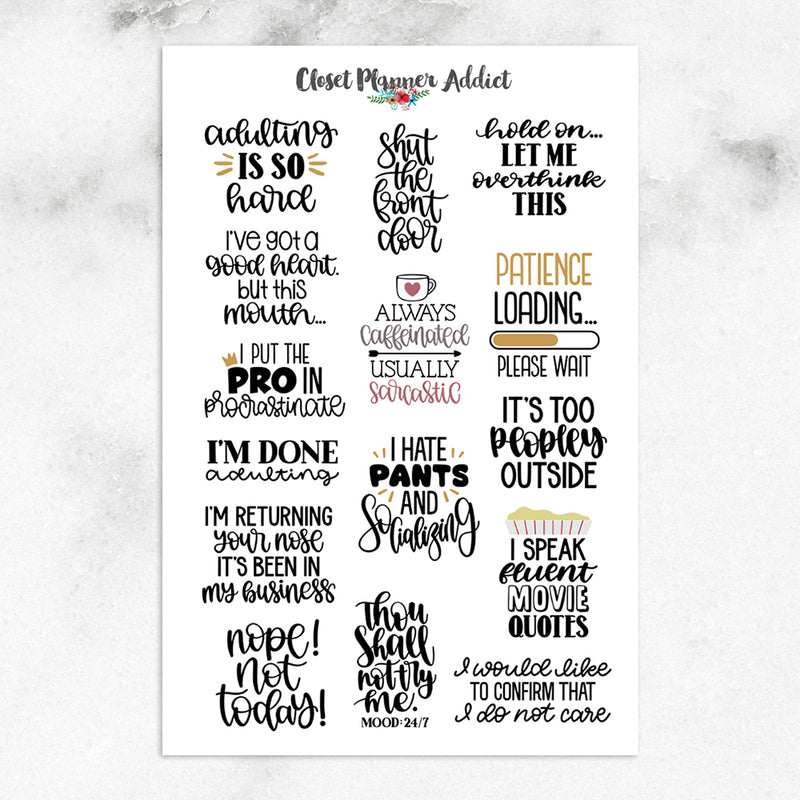 Closet Planner Addict
adulting
IS SO
hard
I've got a
good heart.
but this
mouth...
I PUT THE
PRO IN
procrastinate
I'M DONE
adulting
I'M RETURNING
your nose
IT'S BEEN IN
my business
nope!
not
today!
shut
the
front
door
ALWAYS
caffeinated
USUALLY
sarcastic
I HATE
PANTS
AND
Socializing
Thou
Shall
not try
me.
MOOD: 24/7
hold on...
LET ME
overthink
THIS
PATIENCE
LOADING...
PLEASE WAIT
IT'S TOO
peopley
OUTSIDE
I SPEAK
fluent
MOVIE
QUOTES
I would like
TO CONFIRM THAT
I do not care